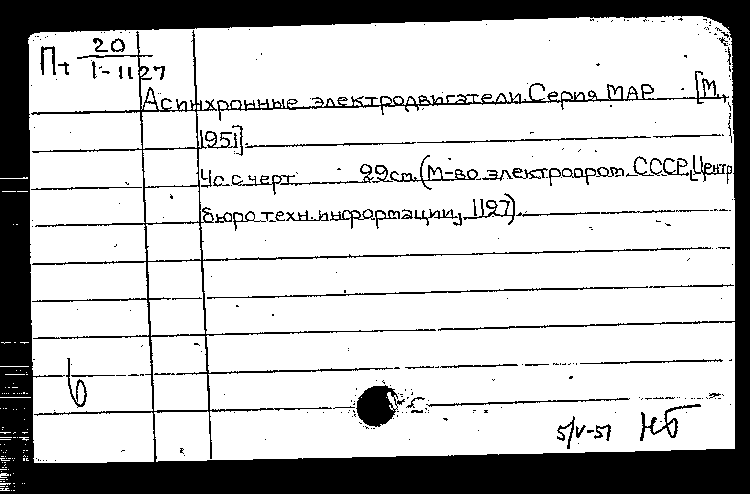 Пт 20
I-1127
Асинхронные электродвигатели. Серия МАР. [М.,
1951].
4с. с черт. 22см. (М-во электропром. СССР. Центр.
бюро техн. информации, 1127).
6
5/V-51 НБ